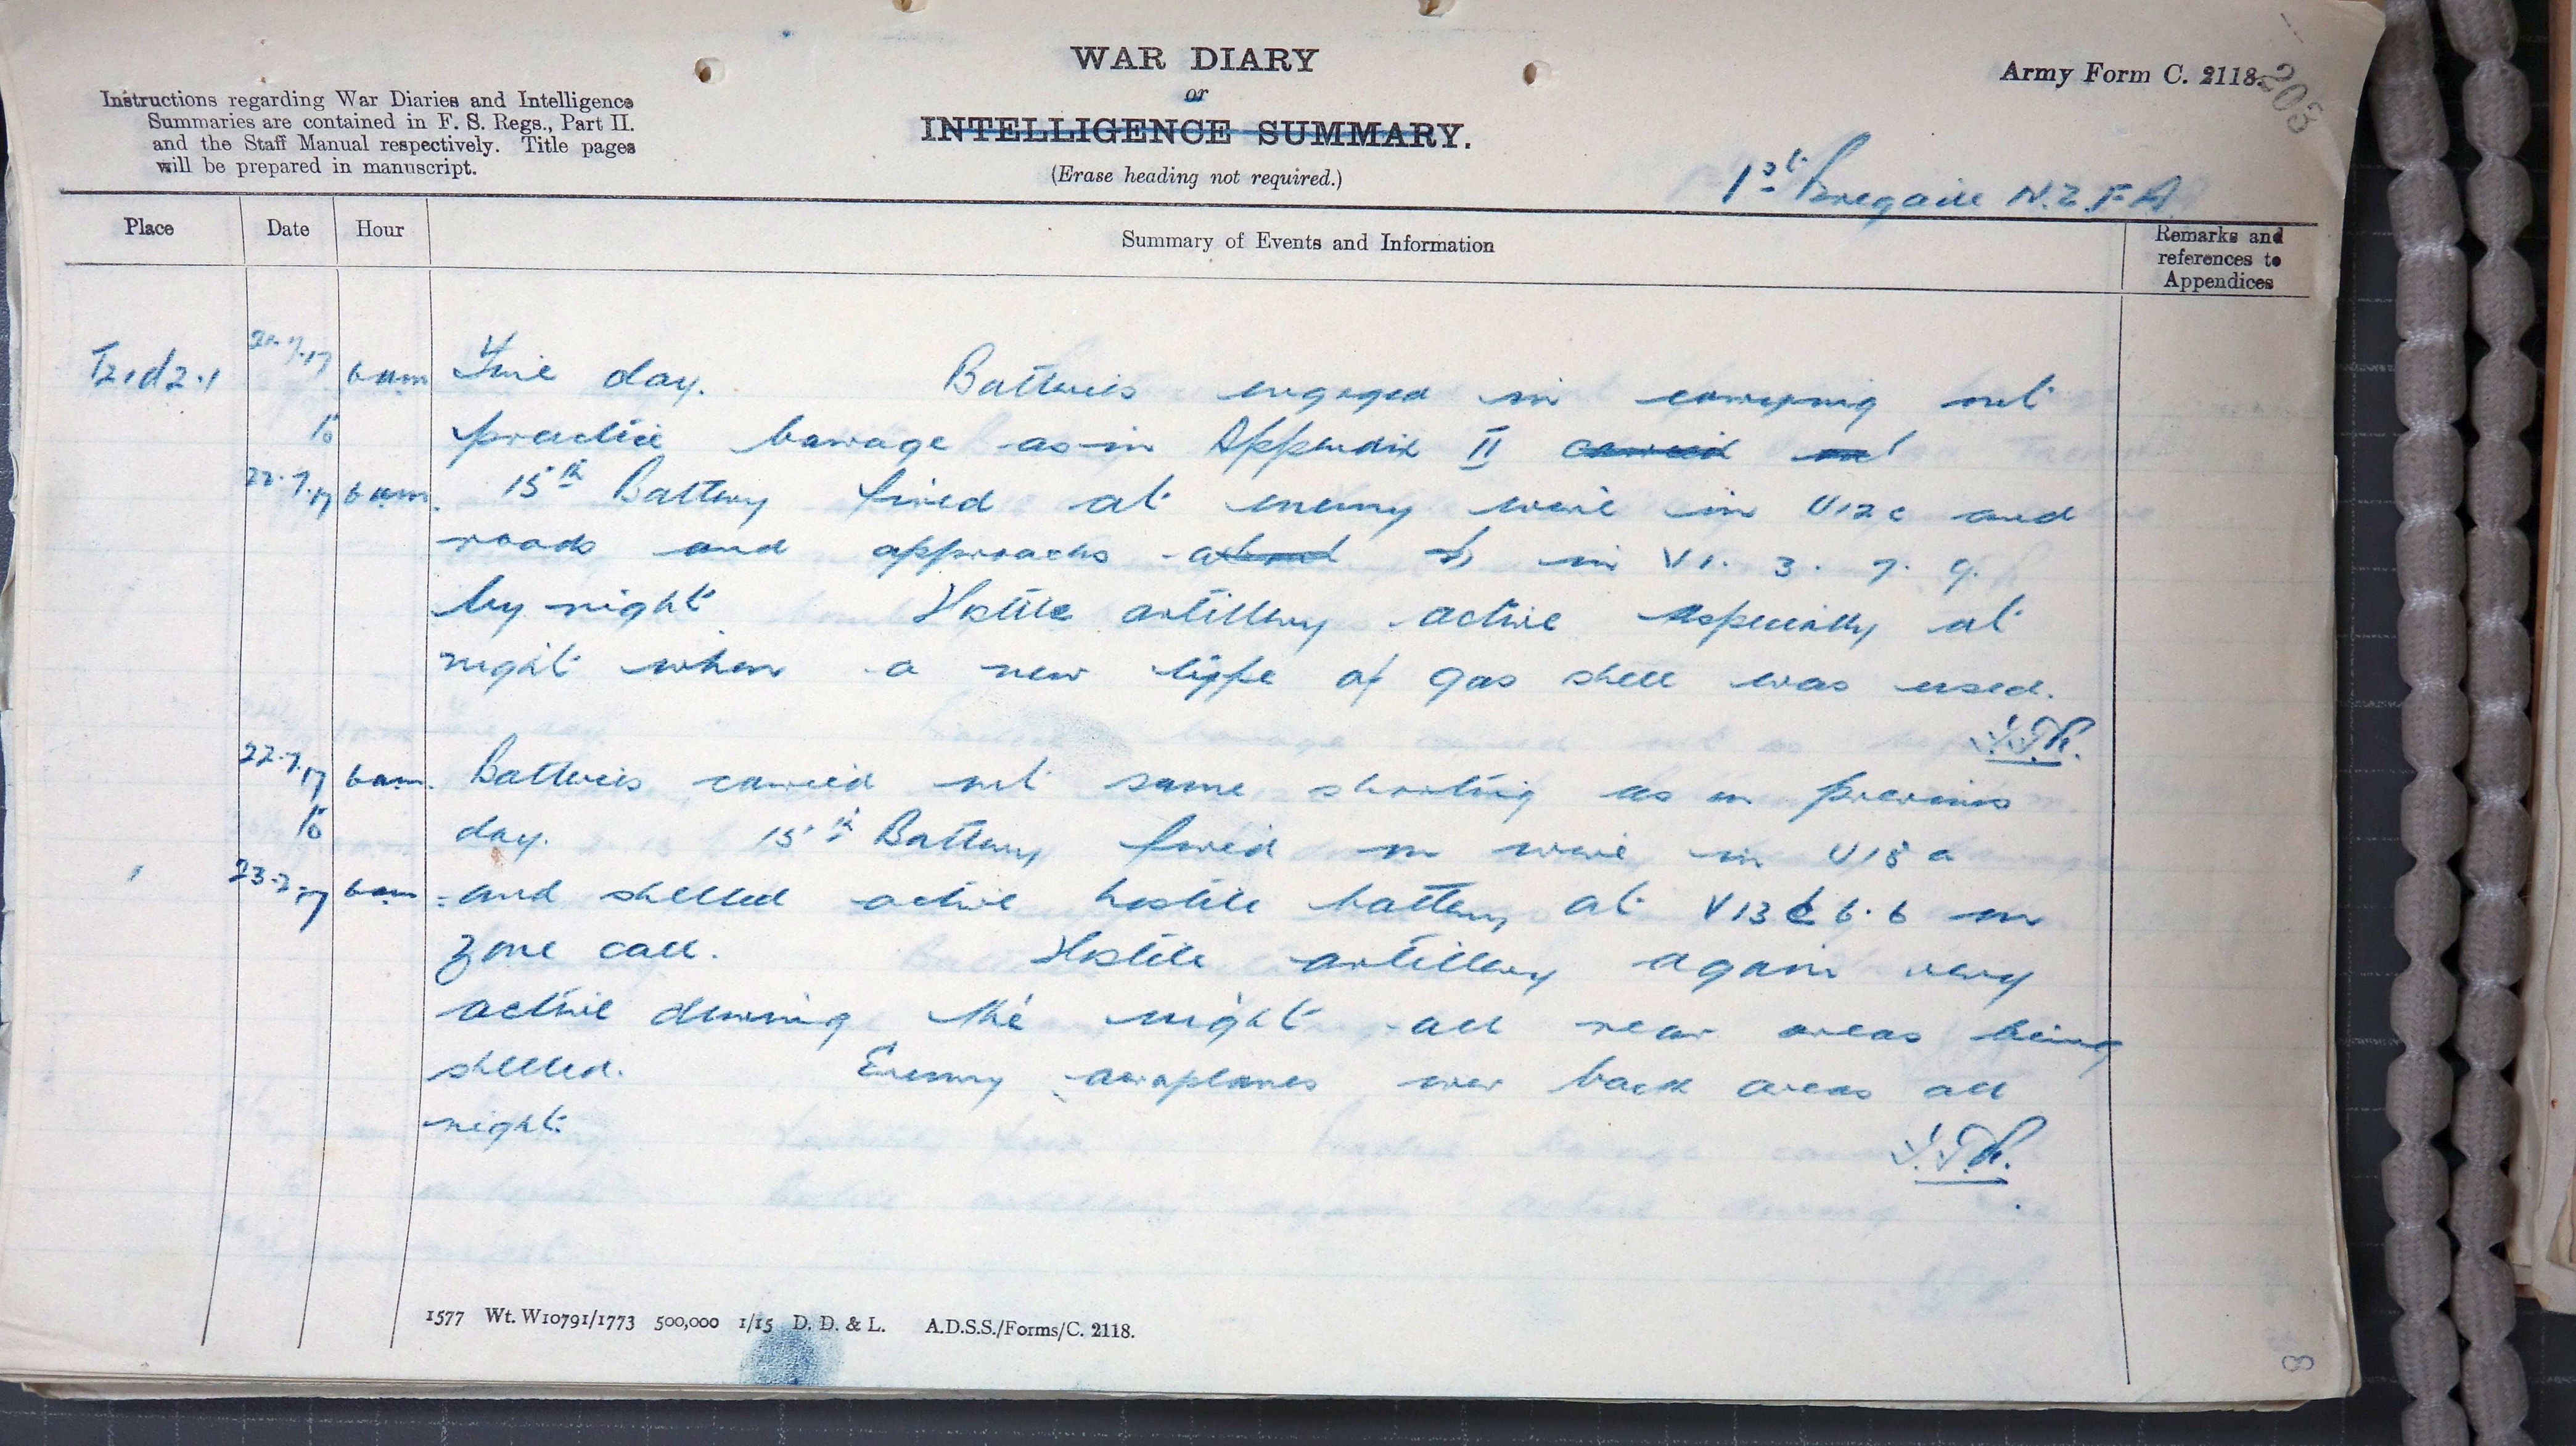 WAR DIARY
or
INTELLIGENCE SUMMARY.
(Erase heading not required.)
Army Form C. 2118.
203
Instructions regarding War Diaries and Intelligence
Summaries are contained in F. S. Regs., Part II.
and the Staff Manual respectively. Title pages
will be prepared in manuscript.
1st Brigade N.Z.F.A.
Place Date Hour Summary of Events and Information Remarks and
references to
Appendices
T21d2.1 21.7.17 6am Fine day. Batteries engaged in carrying out
to practice barrage as in Appendix II carried out
22.7.17 6am. 15th Battery fired at enemy wire in U12c and
roads and approachs in V1. 3. 7. 9.
by night Hostile artillery active especially at
night when a new type of gas shell was used.
22.7.17 6am. Batteries carried out same shooting as on previous
to day. 15th Battery fired on wire in U18a
23.7.17 6am and shelled active hostile battery at V13 6.6 on
zone call. Hostile artillery again very
active during the night all rear areas being
shelled. Enemy aeroplanes over back areas all
night.
1577 Wt. W10791/1773 500,000 1/15 D. D. & L. A.D.S.S./Forms/C. 2118.
8